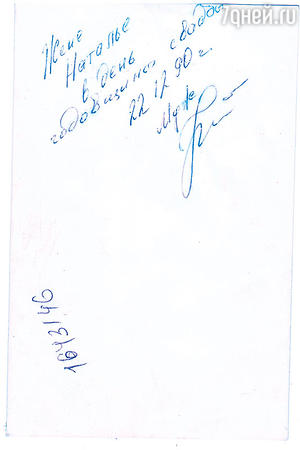 7дней.ru
Жене
Наталье
в день
годовщины свадьбы
22 12 90 г.
Муж
164 31/46